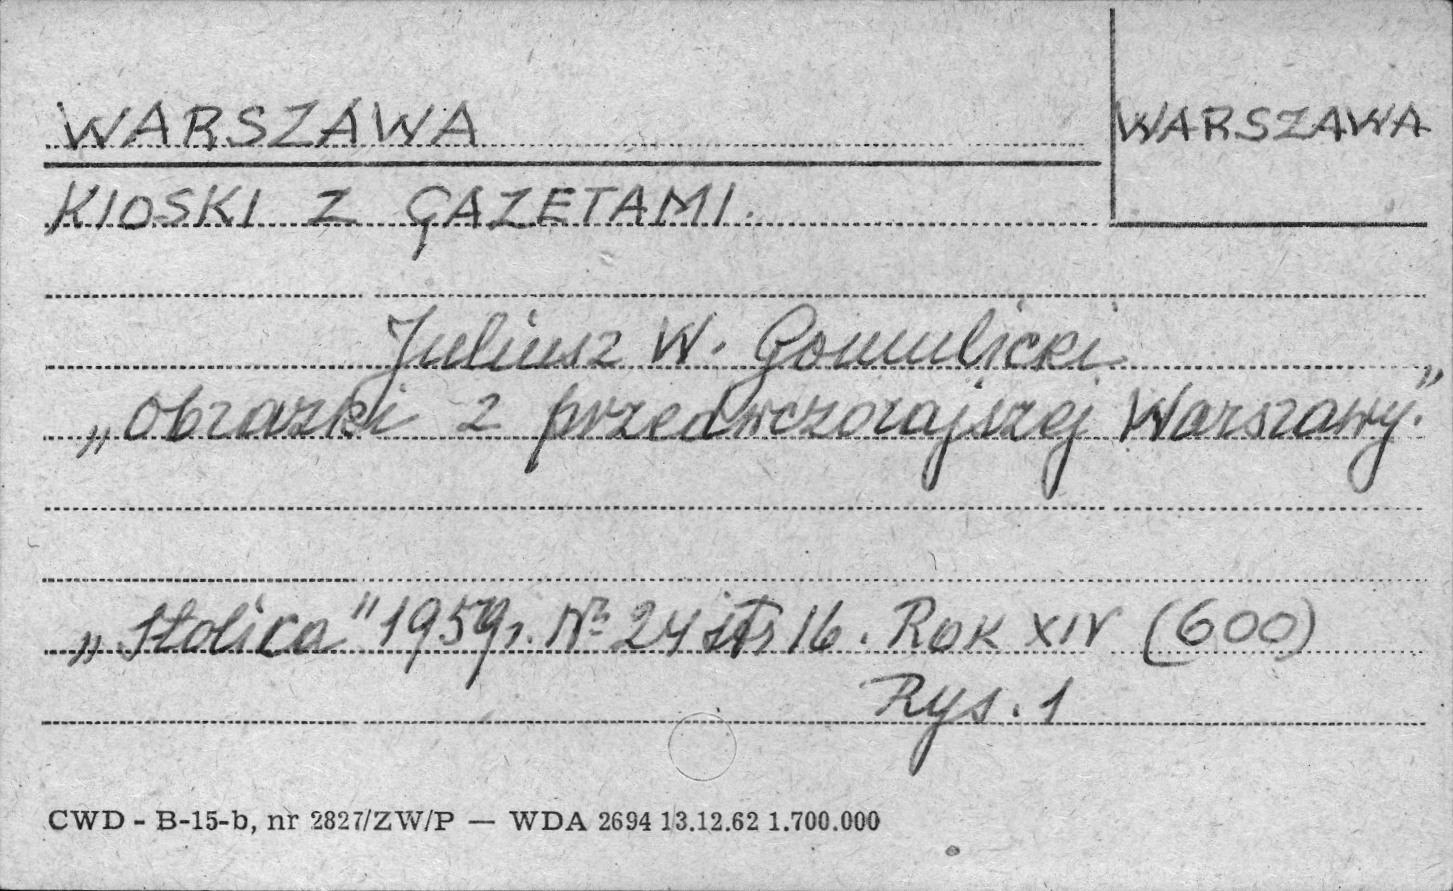 WARSZAWA
WARSZAWA
KIOSKI Z GAZETAMI.
Juliusz W. Gomulicki
„Obrazki z przedwczorajszej Warszawy."
„Stolica" 1959r. № 24 str 16. Rok XIV (600)
Rys. 1
CWD - B-15-b, nr 2827/ZW/P — WDA 2694 13.12.62 1.700.000